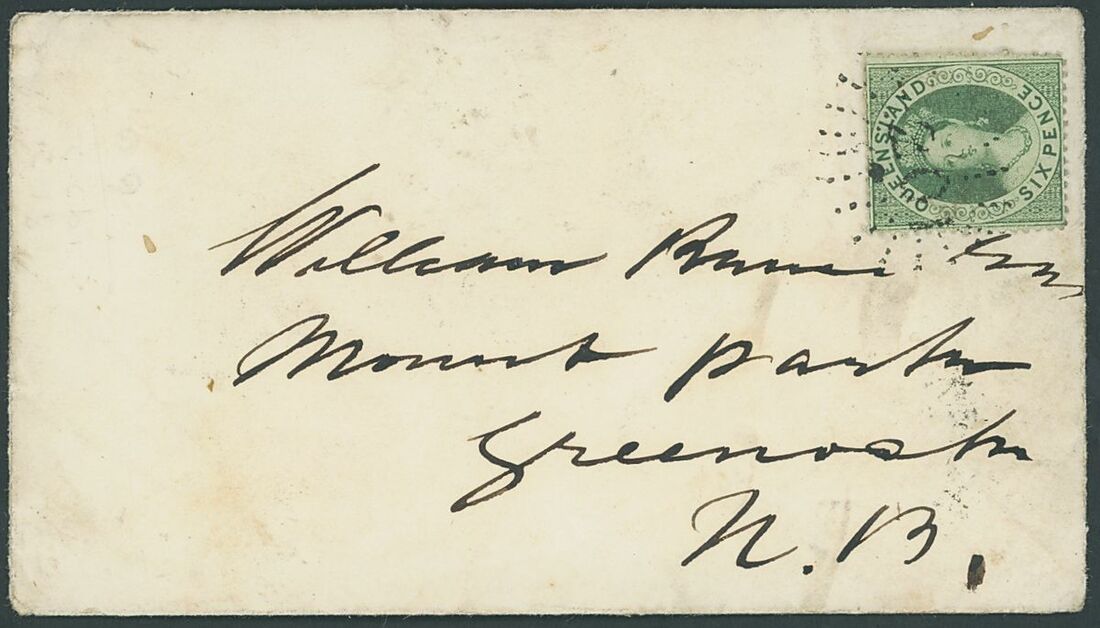 QUEENSLAND
SIX PENCE
William
Mount park
Greenock
N. B.